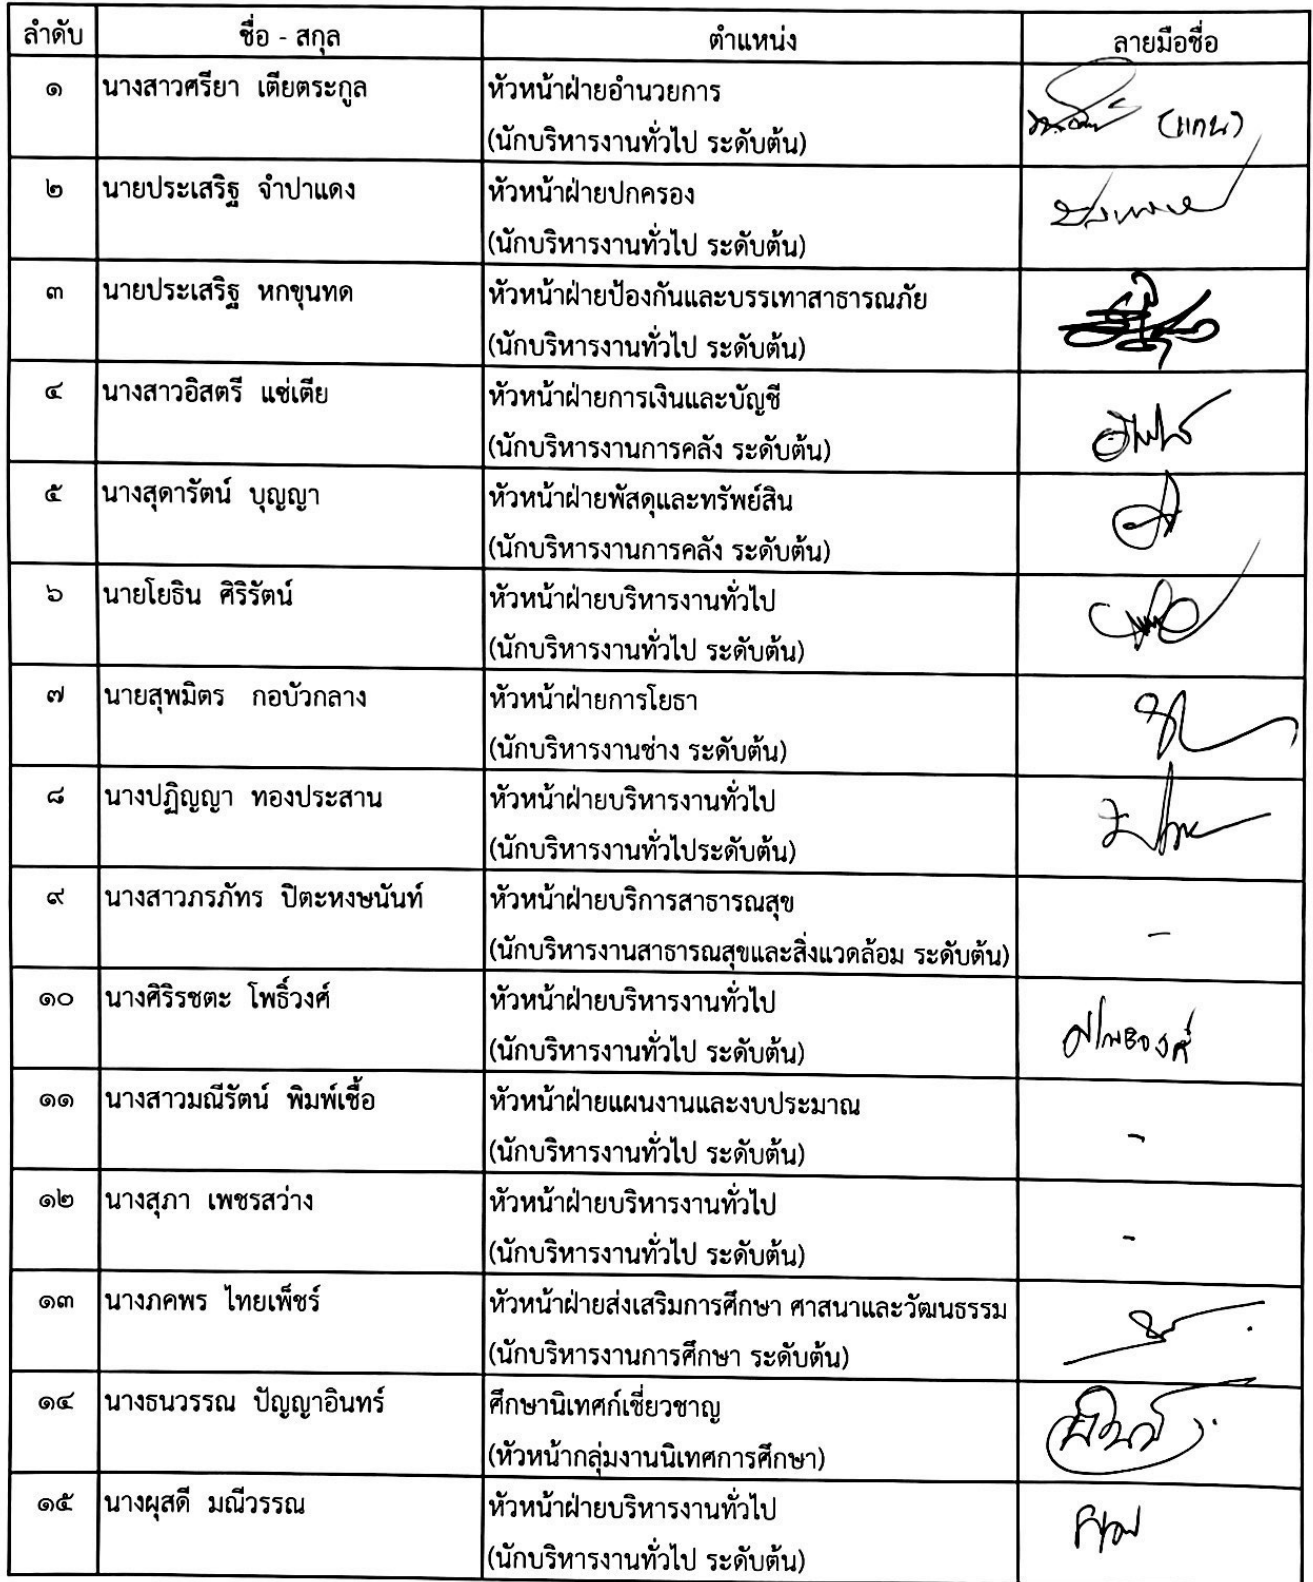 ลำดับ ชื่อ - สกุล ตำแหน่ง ลายมือชื่อ
๑ นางสาวศรียา เตียตระกูล หัวหน้าฝ่ายอำนวยการ
(นักบริหารงานทั่วไป ระดับต้น) (แทน)
๒ นายประเสริฐ จำปาแดง หัวหน้าฝ่ายปกครอง
(นักบริหารงานทั่วไป ระดับต้น)
๓ นายประเสริฐ หกขุนทด หัวหน้าฝ่ายป้องกันและบรรเทาสาธารณภัย
(นักบริหารงานทั่วไป ระดับต้น)
๔ นางสาวอิสตรี แซ่เตีย หัวหน้าฝ่ายการเงินและบัญชี
(นักบริหารงานการคลัง ระดับต้น)
๕ นางสุดารัตน์ บุญญา หัวหน้าฝ่ายพัสดุและทรัพย์สิน
(นักบริหารงานการคลัง ระดับต้น)
๖ นายโยธิน ศิริรัตน์ หัวหน้าฝ่ายบริหารงานทั่วไป
(นักบริหารงานทั่วไป ระดับต้น)
๗ นายสุพมิตร กอบัวกลาง หัวหน้าฝ่ายการโยธา
(นักบริหารงานช่าง ระดับต้น)
๘ นางปฏิญญา ทองประสาน หัวหน้าฝ่ายบริหารงานทั่วไป
(นักบริหารงานทั่วไประดับต้น)
๙ นางสาวภรภัทร ปิตะหงษนันท์ หัวหน้าฝ่ายบริการสาธารณสุข
(นักบริหารงานสาธารณสุขและสิ่งแวดล้อม ระดับต้น) -
๑๐ นางศิริรชตะ โพธิ์วงศ์ หัวหน้าฝ่ายบริหารงานทั่วไป
(นักบริหารงานทั่วไป ระดับต้น)
๑๑ นางสาวมณีรัตน์ พิมพ์เชื้อ หัวหน้าฝ่ายแผนงานและงบประมาณ
(นักบริหารงานทั่วไป ระดับต้น) -
๑๒ นางสุภา เพชรสว่าง หัวหน้าฝ่ายบริหารงานทั่วไป
(นักบริหารงานทั่วไป ระดับต้น) -
๑๓ นางภคพร ไทยเพ็ชร์ หัวหน้าฝ่ายส่งเสริมการศึกษา ศาสนาและวัฒนธรรม
(นักบริหารงานการศึกษา ระดับต้น)
๑๔ นางธนวรรณ ปัญญาอินทร์ ศึกษานิเทศก์เชี่ยวชาญ
(หัวหน้ากลุ่มงานนิเทศการศึกษา)
๑๕ นางผุสดี มณีวรรณ หัวหน้าฝ่ายบริหารงานทั่วไป
(นักบริหารงานทั่วไป ระดับต้น)